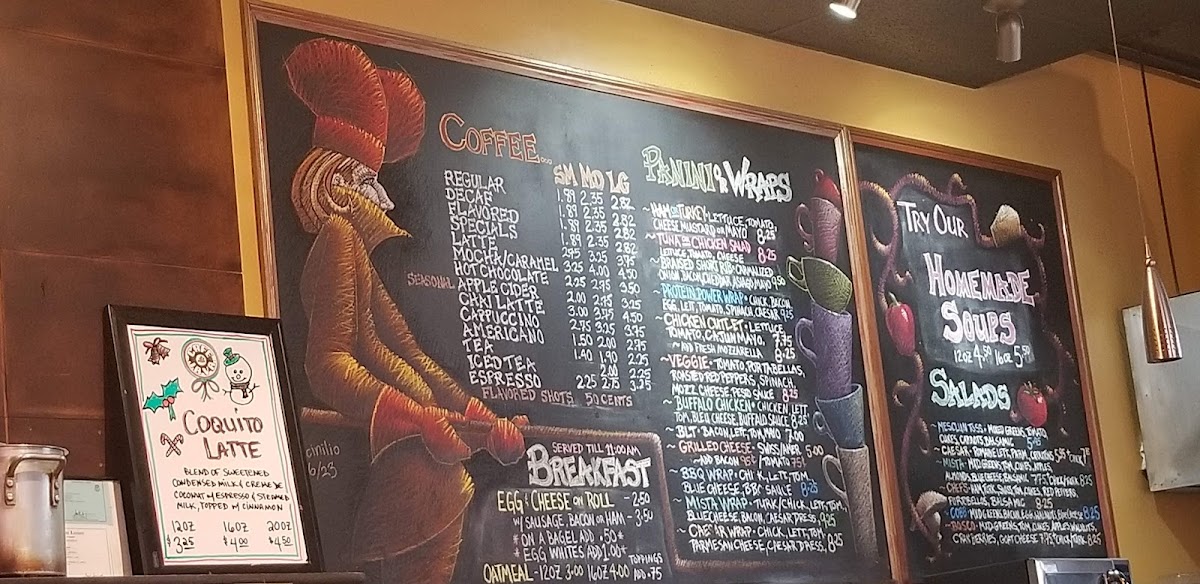 COQUITO
LATTE
BLEND OF SWEETENED
CONDENSED MILK & CREME DE
COCONUT W/ ESPRESSO & STEAMED
MILK, TOPPED W/ CINNAMON
12OZ 16OZ 20OZ
$3.25 $4.00 $4.50
COFFEE...
SM MD LG
REGULAR 1.89 2.35 2.82
DECAF 1.89 2.35 2.82
FLAVORED 1.89 2.35 2.82
SPECIALS 1.89 2.35 2.82
LATTE 2.95 3.25 3.75
MOCHA/CARAMEL 3.25 4.00 4.50
HOT CHOCOLATE 2.25 2.75 3.50
SEASONAL APPLE CIDER 2.00 2.75 3.25
CHAI LATTE 3.00 3.75 4.50
CAPPUCCINO 2.75 3.25 3.75
AMERICANO 1.50 2.00 2.75
TEA 1.40 1.90 2.25
ICED TEA 2.00 2.25
ESPRESSO 2.25 2.75 3.25
FLAVORED SHOTS 50 CENTS
SERVED TILL 11:00AM
BREAKFAST
EGG & CHEESE ON ROLL - 2.50
W/ SAUSAGE, BACON OR HAM - 3.50
* ON A BAGEL ADD .50*
* EGG WHITES ADD 1.00*
OATMEAL - 12OZ 3.00 16OZ 4.00 TOPPINGS ADD .75
PANINI OR WRAPS
~HAM OR TURKEY - LETTUCE, TOMATO,
CHEESE, MUSTARD OR MAYO 8.25
~TUNA OR CHICKEN SALAD
LETTUCE, TOMATO, CHEESE 8.25
~BRAISED SHORT RIB
ONION, ASIAGO MAYO 9.50
~PROTEIN POWER WRAP - CHICK, BACON
EGG, LETT, TOMATO, SPINACH, CAESAR 9.25
~CHICKEN CUTLET - LETTUCE
TOMATO, CAJUN MAYO, 7.75
~AND FRESH MOZZARELLA 8.25
~VEGGIE - TOMATO, PORTABELLAS,
ROASTED RED PEPPERS, SPINACH,
MOZZ CHEESE, PESTO SAUCE 8.25
~BUFFALO CHICKEN - CHICKEN, LETT
TOM, BLEU CHEESE, BUFFALO SAUCE 8.25
~BLT - BACON, LETT, TOM, MAYO 7.00
~GRILLED CHEESE - SWISS/AMER. 5.00
~AND BACON /TOMATO
~BBQ WRAP - CHICK, LETT, TOM,
BLUE CHEESE, BBQ SAUCE 8.25
~MISTA WRAP - TURK/CHICK, LETT, TOM,
BLUE CHEESE, BACON, CAESAR DRESS, 9.25
~CAESAR WRAP - CHICK, LETT, TOM,
PARMESAN CHEESE, CAESAR DRESS, 8.25
TRY OUR
HOMEMADE
SOUPS
12OZ 4.50 16OZ 5.50
SALADS
~MESCLUN TOSS - MIXED GREENS, TOMATO
CUKES, CARROTS, BALSAMIC
~CAESAR - ROMAINE LETT, PARM, CROUTONS
~MISTA - MXD GREENS, TOM, CUKES, APPLES,
ALMONDS, BLUE CHEESE, BALSAMIC 7.75 + CHICK/TURK 8.25
~CHEFS - TURK, SWISS, TOM, CUKES, RED PEPPERS,
PORTABELLAS, BALSAMIC 8.25
~COBB - MXD GREENS, BACON, EGG, WALNUTS, BLUE CHEESE 8.25
~BOSCO - MXD GREENS, TOM, CUKES, APPLES, WALNUTS,
CRANBERRIES, GOAT CHEESE 7.75 + CHICK/TURK 8.25